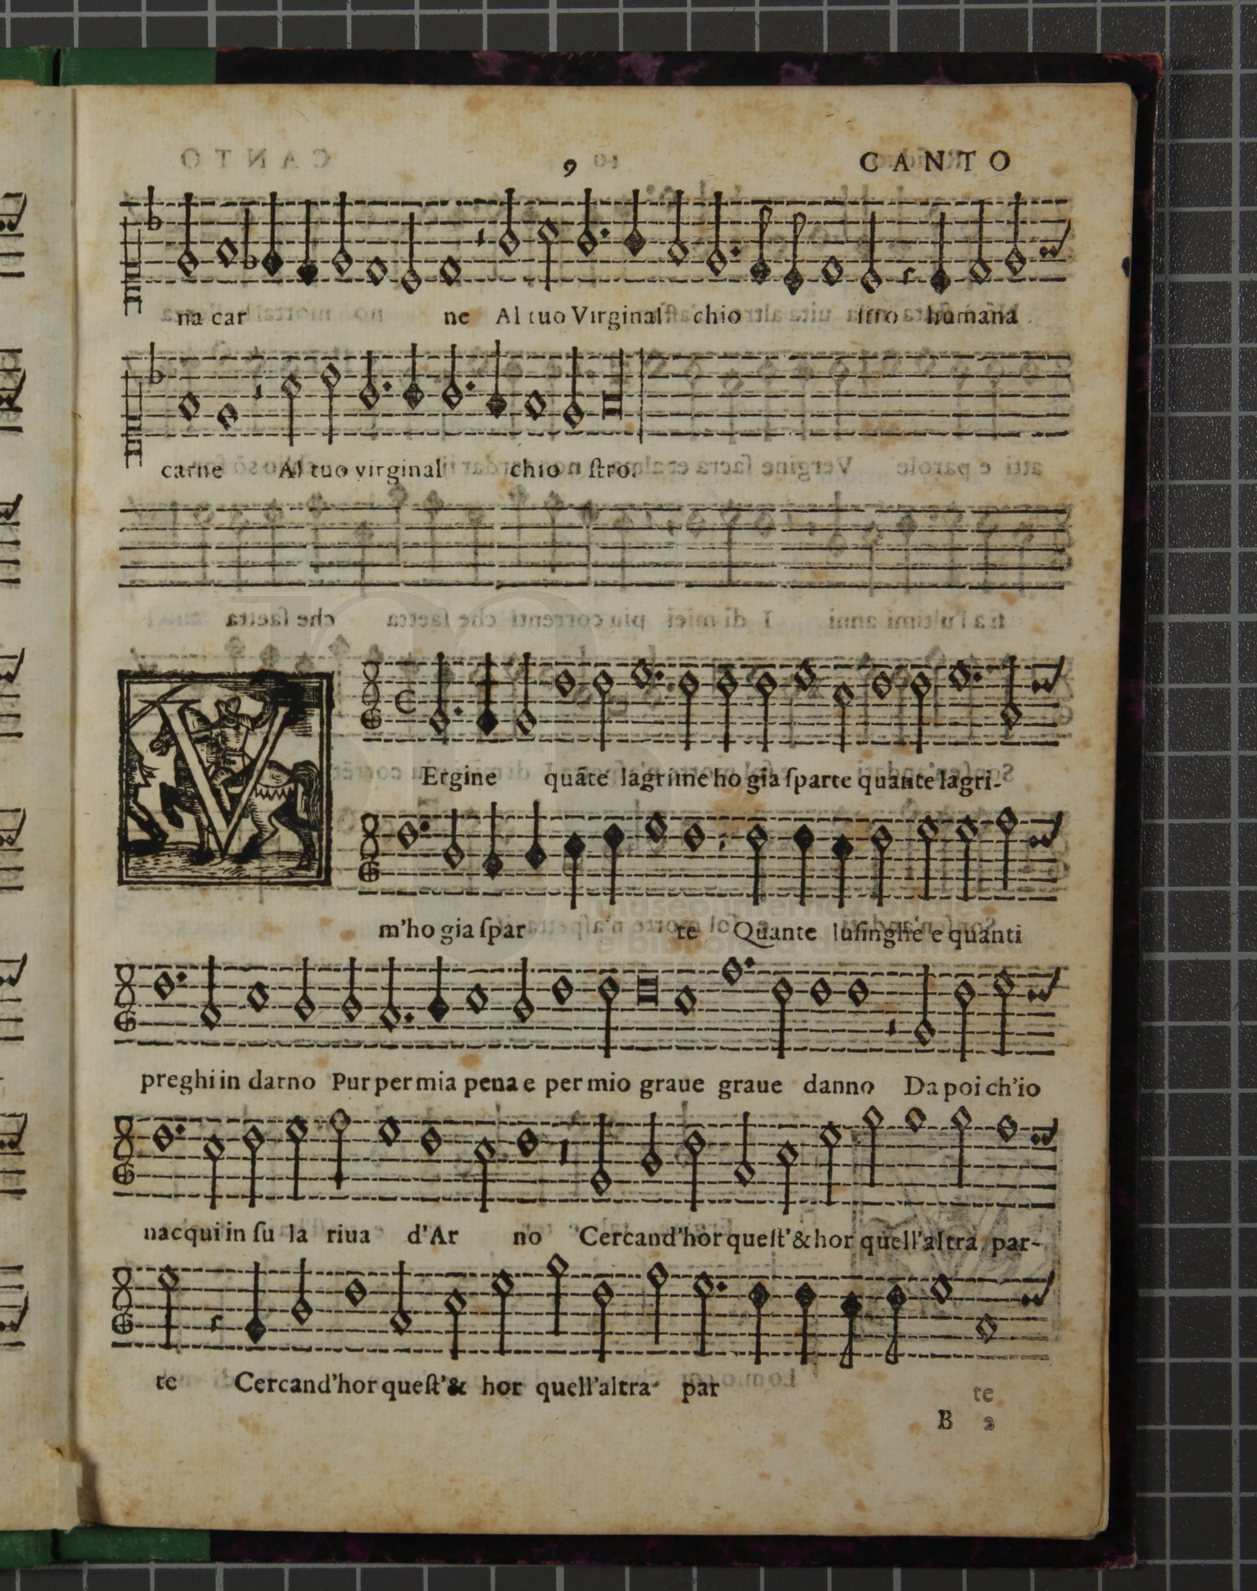 9 CANTO
na car ne Al tuo Virginal chio ſtro humana
carne Al tuo virginal chio ſtro.
VErgine quãte lagrime ho gia ſparte quante lagri-
m'ho gia ſpar te Quante luſinghe e quanti
preghi in darno Pur per mia pena e per mio graue graue danno Da poi ch'io
nacqui in ſu la riua d'Ar no Cercand'hor queſt'& hor quell'altra par-
te Cercand'hor queſt'& hor quell'altra par te
B 2